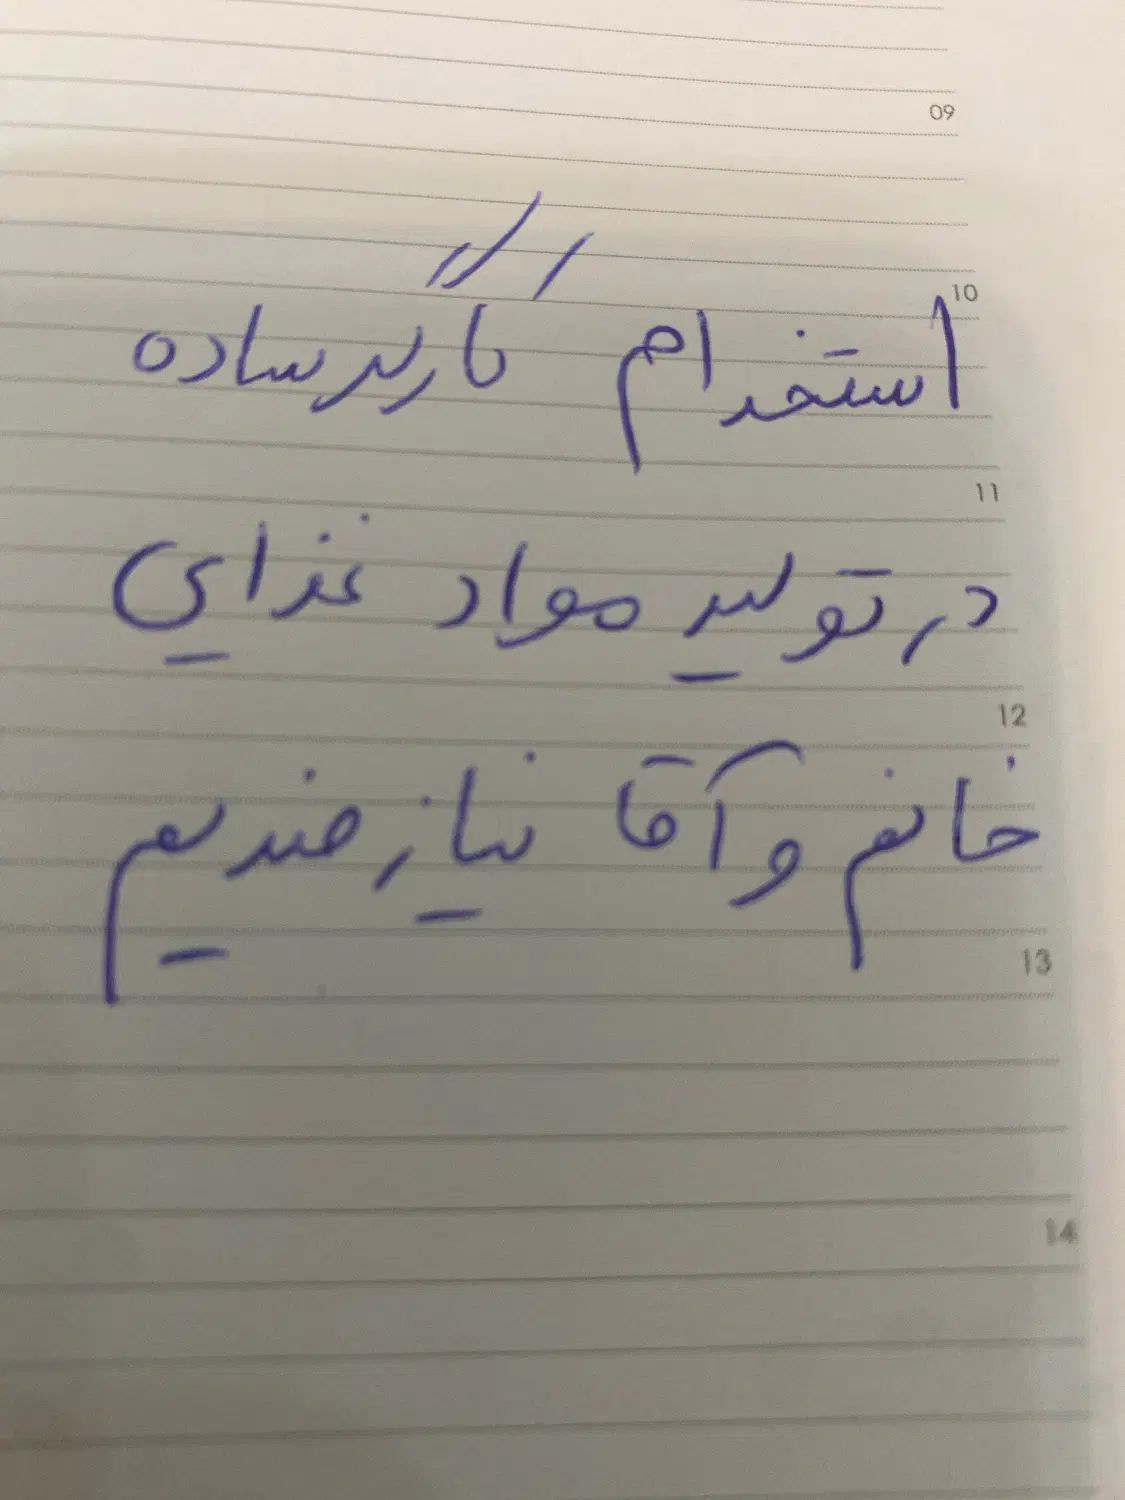 09
10
استخدام کارگر ساده
11
در تولید مواد غذایی
12
خانم و آقا نیازمندیم
13
14